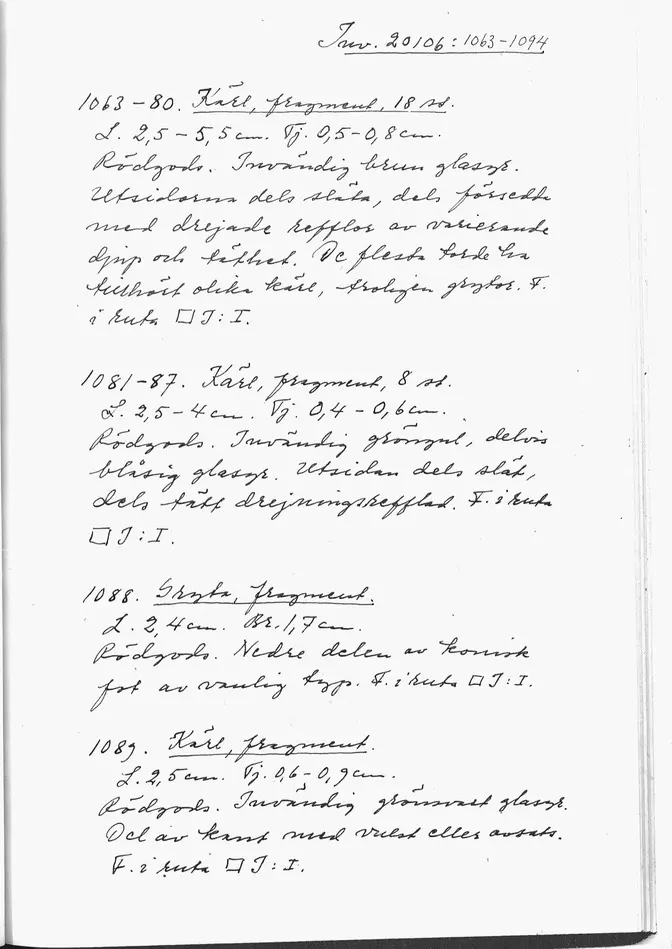 Inv. 20106:1063-1094
1063-80. Kärl, fragment, 18 st.
L. 2,5-5,5 cm. Tj. 0,5-0,8 cm.
Rödgods. Invändig brun glasyr.
Utsidorna dels släta, dels försedda
med drejade refflor av varierande
djup och täthet. De flesta torde ha
tillhört olika kärl, troligen grytor. F.
i ruta □ J:I.
1081-87. Kärl, fragment, 8 st.
L. 2,5-4 cm. Tj. 0,4-0,6 cm.
Rödgods. Invändig gröngul, delvis
blåsig glasyr. Utsidan dels slät,
dels tätt drejningsrefflad. F. i ruta
□ J:I.
1088. Gryta, fragment.
L. 2,4 cm. Br. 1,7 cm.
Rödgods. Nedre delen av konisk
fot av vanlig typ. F. i ruta □ J:I.
1089. Kärl, fragment.
L. 2,5 cm. Tj. 0,6-0,9 cm.
Rödgods. Invändig grönsvart glasyr.
Del av kant med vulst eller avsats.
F. i ruta □ J:I.